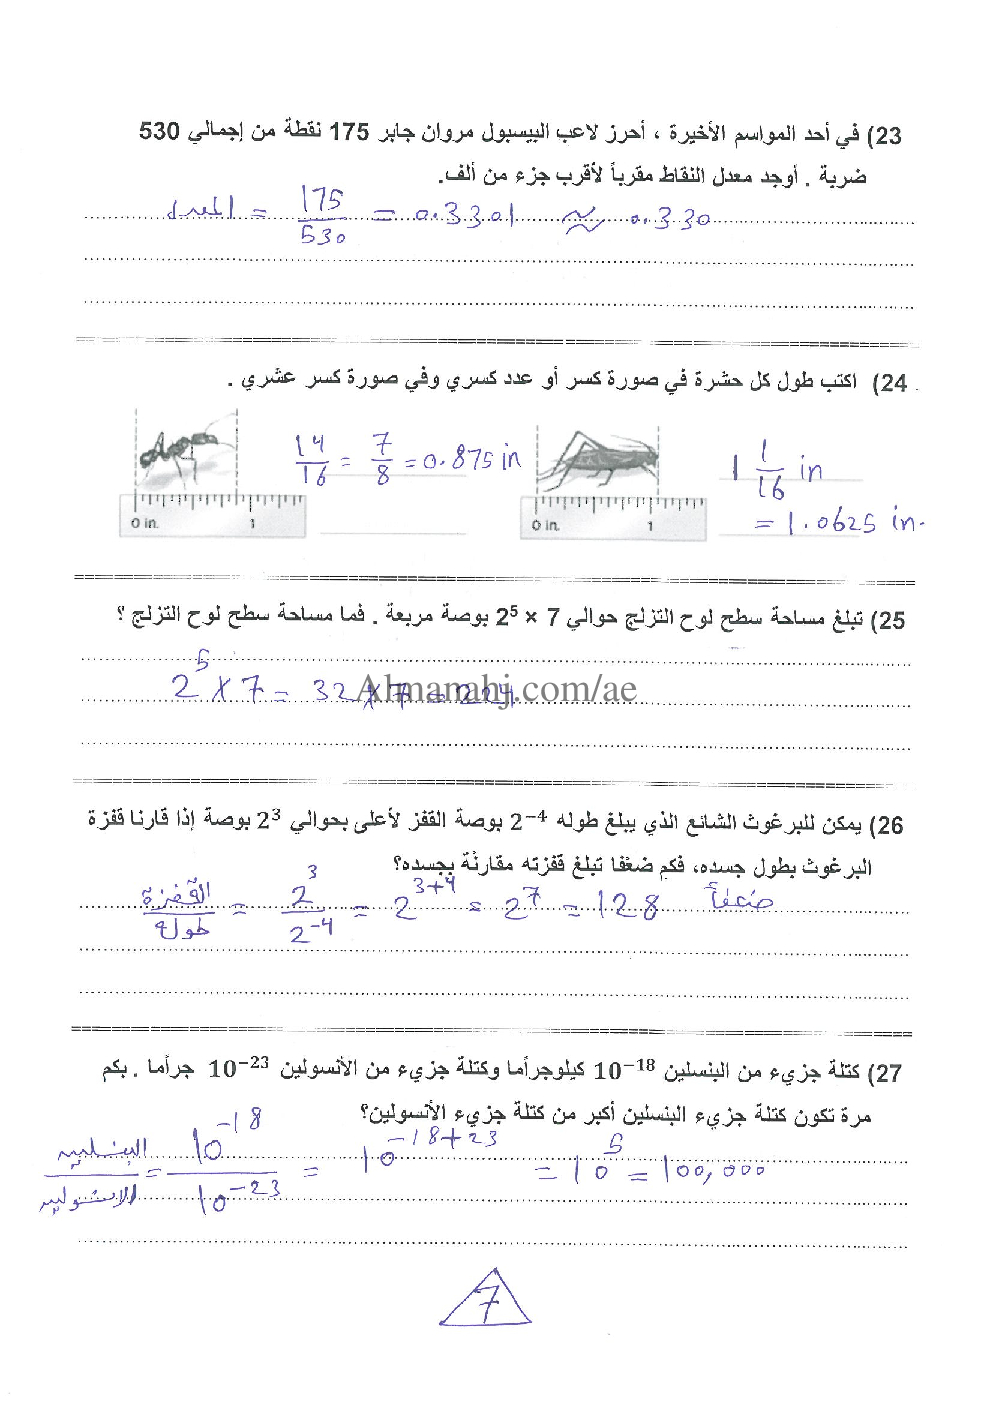 23) في أحد المواسم الأخيرة ، أحرز لاعب البيسبول مروان جابر 175 نقطة من إجمالي 530
ضربة . أوجد معدل النقاط مقرباً لأقرب جزء من ألف.
المعدل = 175/530 = 0.3301 ≈ 0.330
24) اكتب طول كل حشرة في صورة كسر أو عدد كسري وفي صورة كسر عشري .
14/16 = 7/8 = 0.875 in
0 in. 1
1 1/16 in
= 1.0625 in.
0 in. 1
25) تبلغ مساحة سطح لوح التزلج حوالي 7 × 2⁵ بوصة مربعة . فما مساحة سطح لوح التزلج ؟
2⁵ × 7 = 32 × 7 = 224
Almanahj.com/ae
26) يمكن للبرغوث الشائع الذي يبلغ طوله 2⁻⁴ بوصة القفز لأعلى بحوالي 2³ بوصة إذا قارنا قفزة
البرغوث بطول جسده، فكم ضعْفا تبلغ قفزته مقارنْة بجسده؟
القفزة/طوله = 2³/2⁻⁴ = 2³⁺⁴ = 2⁷ = 128 ضعفاً
27) كتلة جزيء من البنسلين 10⁻¹⁸ كيلوجرأما وكتلة جزيء من الأنسولين 10⁻²³ جرأما . بكم
مرة تكون كتلة جزيء البنسلين أكبر من كتلة جزيء الأنسولين؟
البنسلين/الانسولين = 10⁻¹⁸/10⁻²³ = 10⁻¹⁸⁺²³ = 10⁵ = 100,000
7